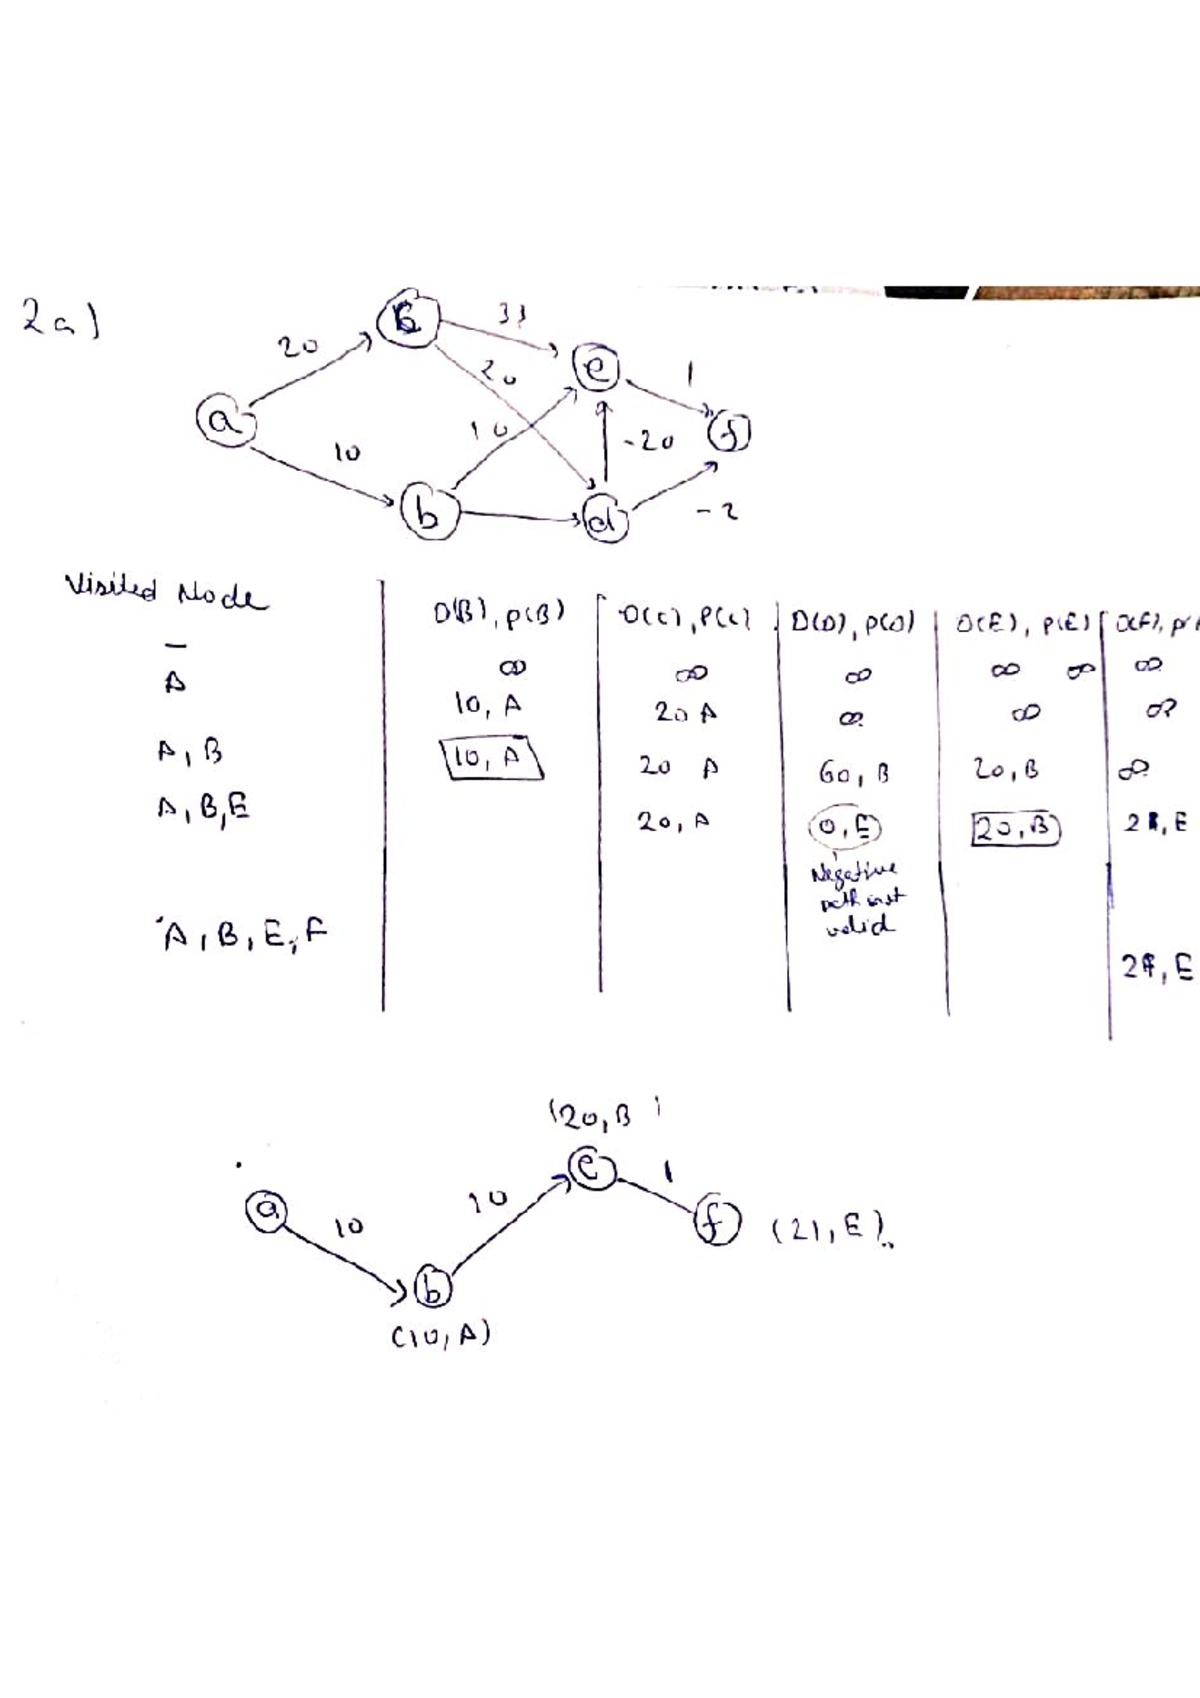 2a)
20
33
20
1
a
c
e
f
10
10
-20
-2
b
d
Visited Node
D(B), p(B)
D(C), P(C)
D(D), p(D)
D(E), p(E)
D(F), p
–
∞
∞
∞
∞ ∞
∞
A
10, A
20 A
∞
∞
∞
A, B
10, A
20 A
60, B
20, B
∞
A, B, E
20, A
0, E
20, B
21, E
Negative
path is not
valid
A, B, E, F
21, E
(20, B )
e
1
a
10
10
f (21, E)
b
(10, A)